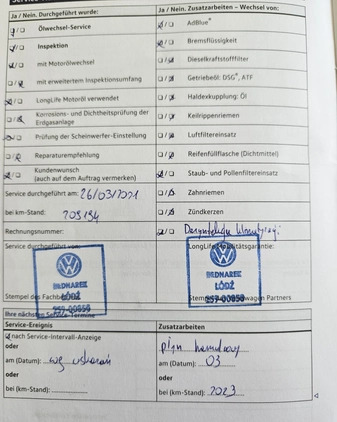 Ja / Nein. Durchgeführt wurde:
Ölwechsel-Service
Inspektion
mit Motorölwechsel
mit erweitertem Inspektionsumfang
LongLife Motoröl verwendet
Korrosions- und Dichtheitsprüfung der Erdgasanlage
Prüfung der Scheinwerfer-Einstellung
Reparaturempfehlung
Kundenwunsch
(auch auf dem Auftrag vermerken)
Service durchgeführt am: 26/03/2021
bei km-Stand: 205194
Rechnungsnummer:
Service durchgeführt von:
BEDNAREK
ŁÓDŹ
557-00858
Stempel des Fachbetriebs
Ja / Nein. Zusatzarbeiten – Wechsel von:
AdBlue®
Bremsflüssigkeit
Dieselkraftstofffilter
Getriebeöl: DSG®, ATF
Haldexkupplung: Öl
Keilrippenriemen
Luftfiltereinsatz
Reifenfüllflasche (Dichtmittel)
Staub- und Pollenfiltereinsatz
Zahnriemen
Zündkerzen
LongLife Mobilitätsgarantie:
BEDNAREK
ŁÓDŹ
557-00858
Stempel Volkswagen Partners
Ihre nächsten Service-Termine
Service-Ereignis
nach Service-Intervall-Anzeige
oder
am (Datum): wg wskazań
oder
bei (km-Stand):
Zusatzarbeiten
płyn hamulcowy
am (Datum): 03
oder
bei (km-Stand): 2023